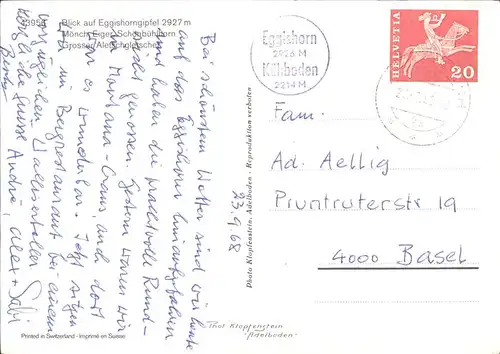 3895
Blick auf Eggishorngipfel 2927 m
Mönch Eiger Schönbühlhorn
Grosser Aletschgletscher
Eggishorn
2926 M
Kühboden
2214 M
HELVETIA
20
Bei schönstem Wetter sind wir heute
auf das Eggishorn hinaufgefahren
und haben die prachtvolle Rund-
sicht genossen. Gestern waren wir
in Montana-Crans, auch dort
war es wunderbar. Jetzt sitzen
wir im Bergrestaurant bei einem
vorzüglichen Walliserteller
Herzliche Grüsse André, Alex + Gabi
23.9.68
Fam.
Ad. Aellig
Pruntruterstr 19
4000 Basel
Photo Klopfenstein, Adelboden - Reproduktion verboten
Phot Klopfenstein
"Adelboden"
Printed in Switzerland - Imprimé en Suisse